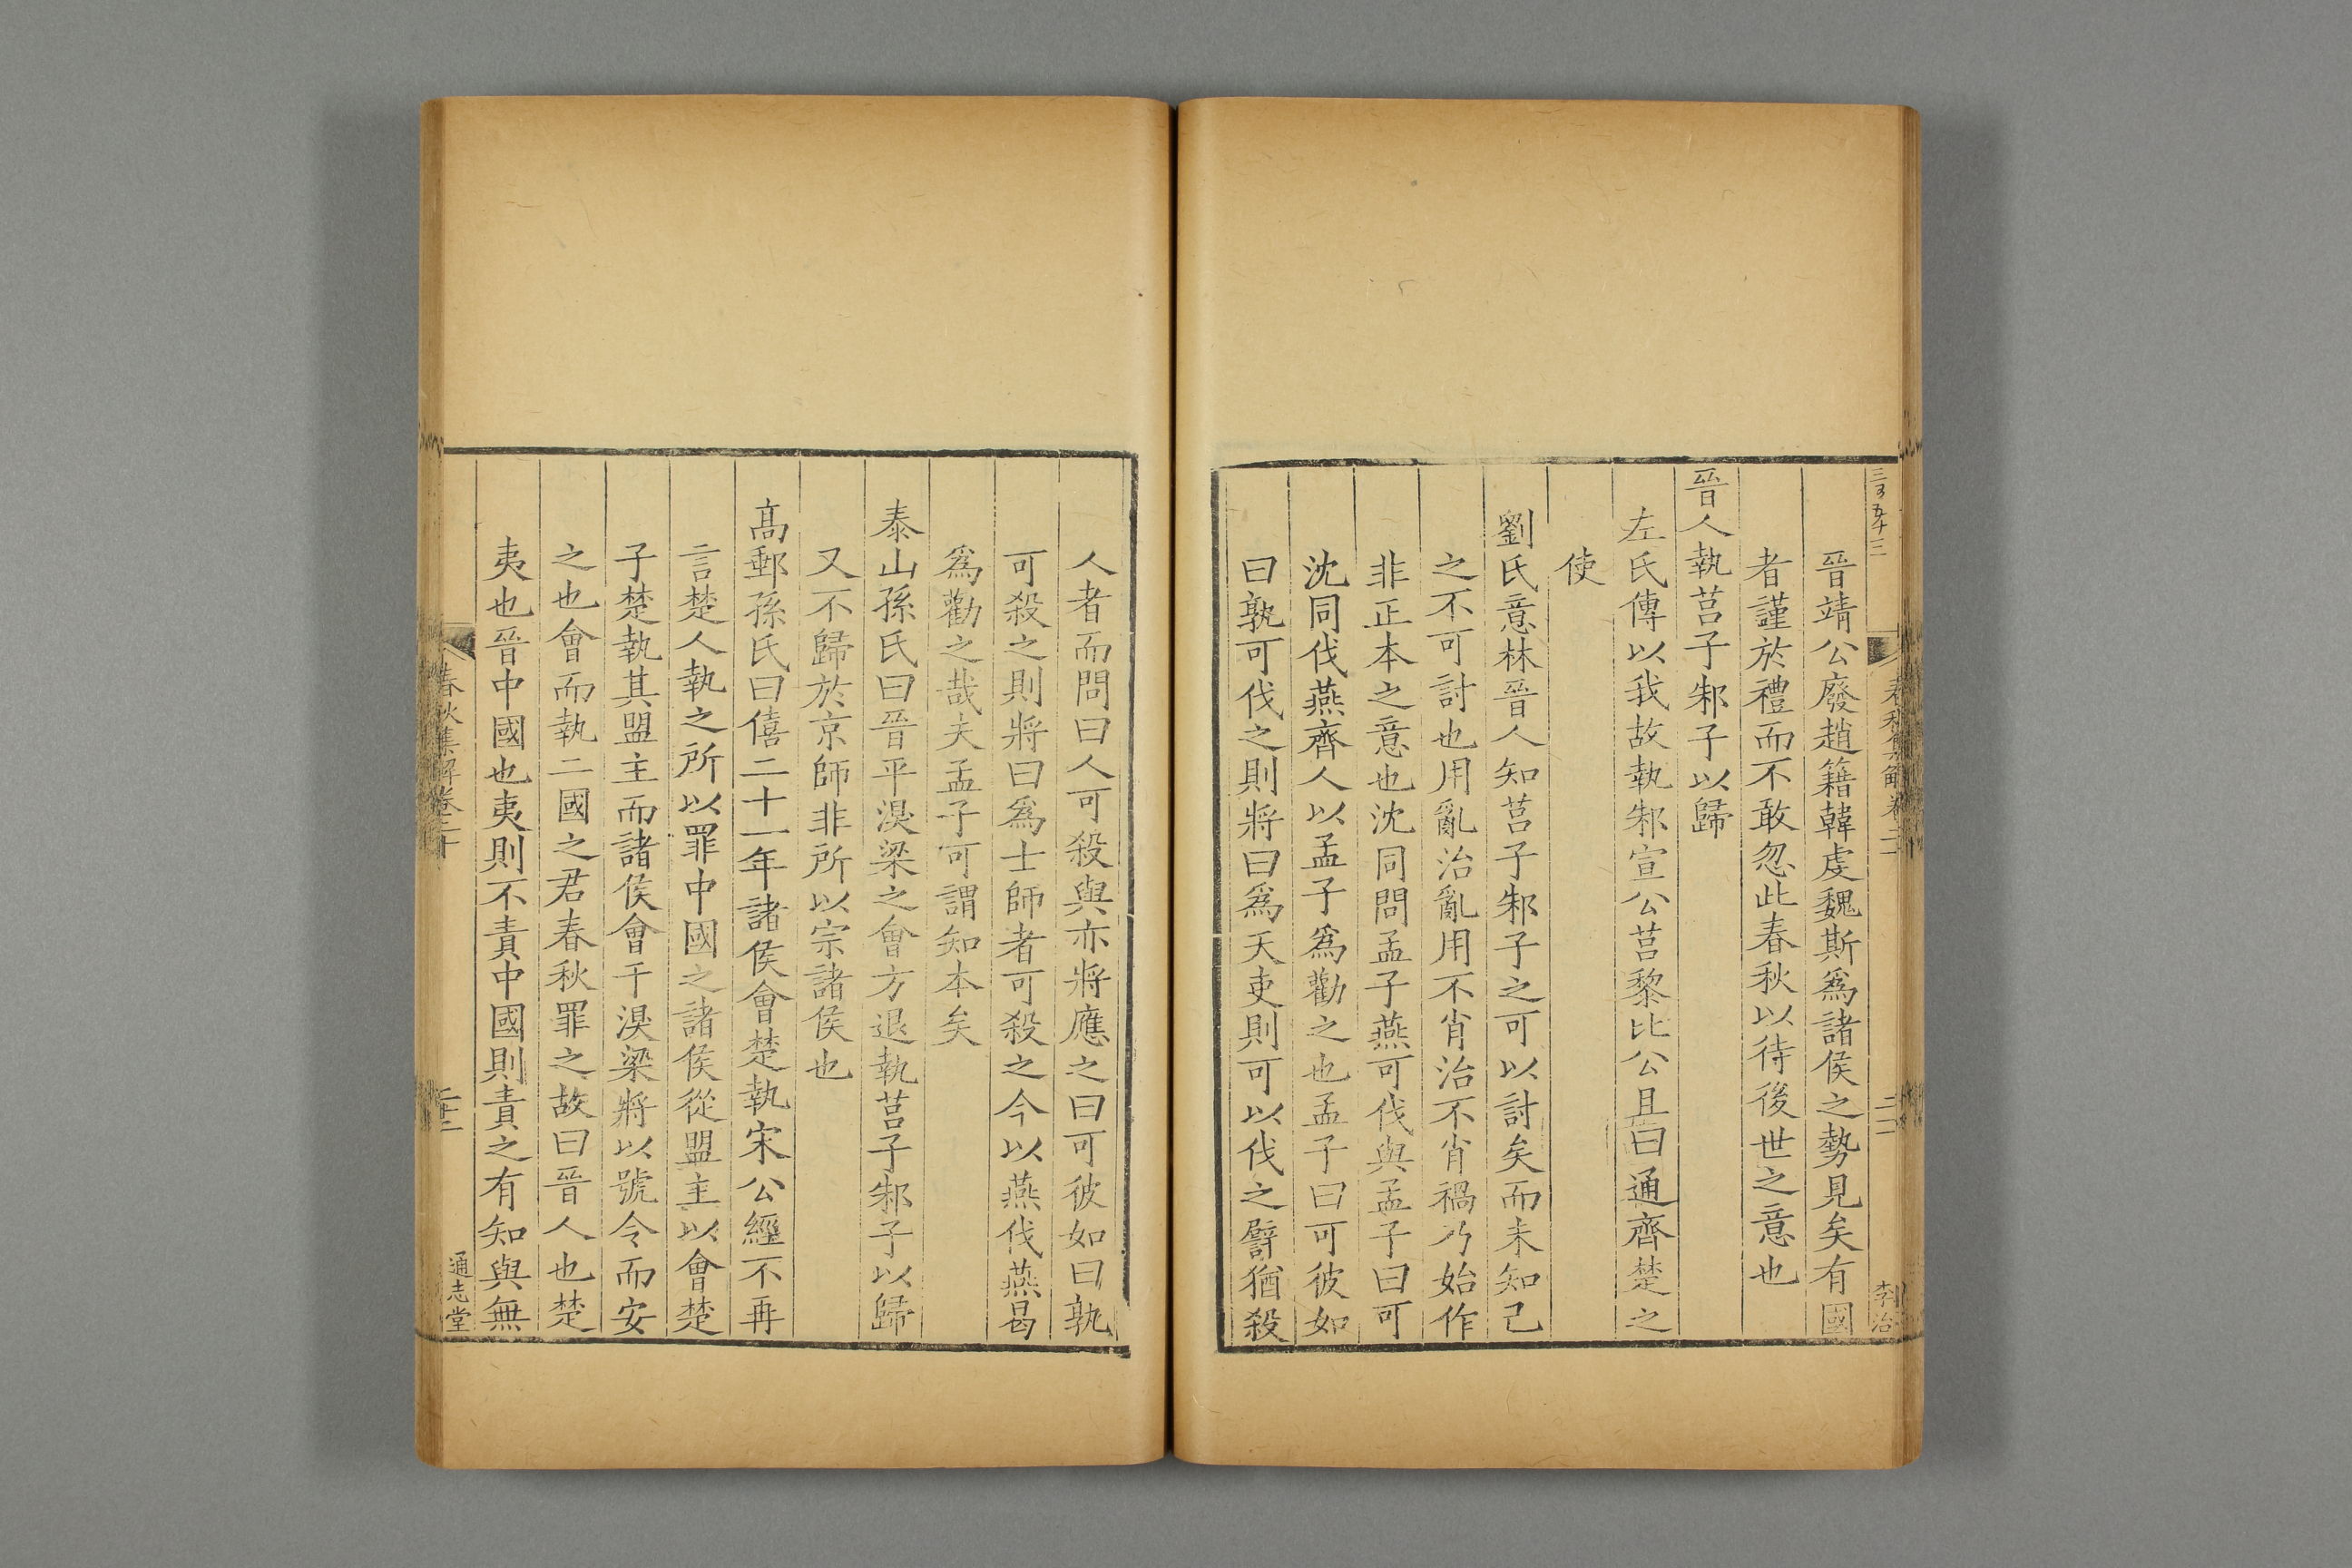 晉靖公廢趙籍韓虔魏斯爲諸侯之勢見矣有國
者謹於禮而不敢忽此春秋以待後世之意也
晉人執莒子邾子以歸
左氏傳以我故執邾宣公莒黎比公且曰通齊楚之
使
劉氏意林晉人知莒子邾子之可以討矣而未知己
之不可討也用亂治亂用不肖治不肖禍乃始作
非正本之意也沈同問孟子燕可伐與孟子曰可
沈同伐燕齊人以孟子爲勸之也孟子曰可彼如
曰孰可伐之則將曰爲天吏則可以伐之譬猶殺
李治
人者而問曰人可殺與亦將應之曰可彼如曰孰
可殺之則將曰爲士師者可殺之今以燕伐燕曷
爲勸之哉夫孟子可謂知本矣
泰山孫氏曰晉平湨梁之會方退執莒子邾子以歸
又不歸於京師非所以宗諸侯也
高郵孫氏曰僖二十一年諸侯會楚執宋公經不再
言楚人執之所以罪中國之諸侯從盟主以會楚
子楚執其盟主而諸侯會于湨梁將以號令而安
之也會而執二國之君春秋罪之故曰晉人也楚
夷也晉中國也夷則不責中國則責之有知與無
春秋集解卷二十
通志堂